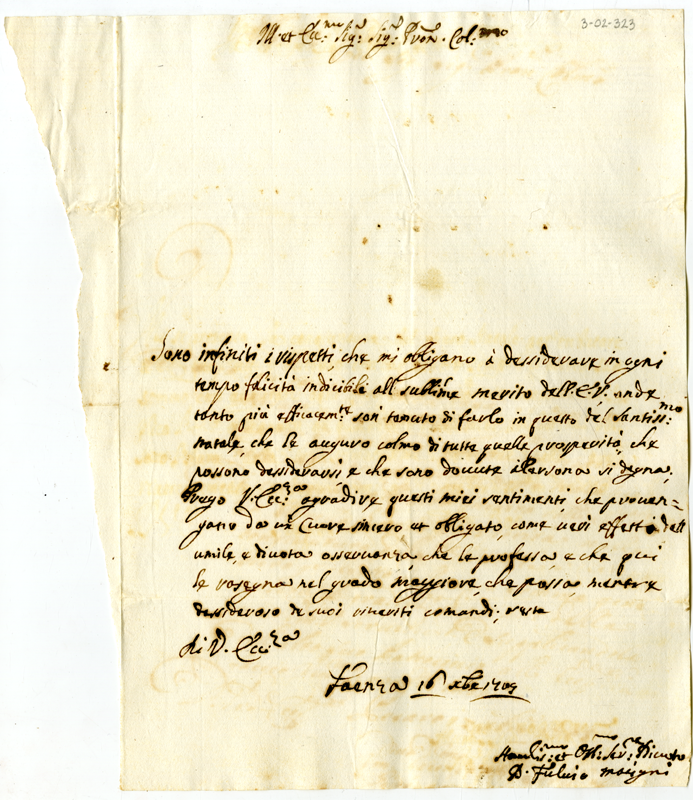 3-02-323
Ill. et Ecc.mo Sig.r Sig.r Pron. Col.mo
Sono infiniti i rispetti, che mi obligano à dessiderare in ogni
tempo felicità indicibile all sublime merito dell. E.V. onde
tanto più efficacem.te son tenuto di farlo in questo del Santiss.mo
natale, che le auguro colmo di tutte quelle prosperità, che
possono dessiderarsi, e che sono dovute à Persona si degna,
Prego V. Ecc.za agradire questi miei sentimenti, che proven=
gano da un Cuore sincero et obligato, come veri effetti dell
umile, e divota osservanza, che le professa, e che qui
le rasegna nel grado maggiore, che possa, mentre
dessideroso de suoi riveriti comandi, resta
di V. Ecc.za
Faenza 16 xbre 1709
Humiliss.mo et Obl.mo Ser.re Divoto
D. Fulvio